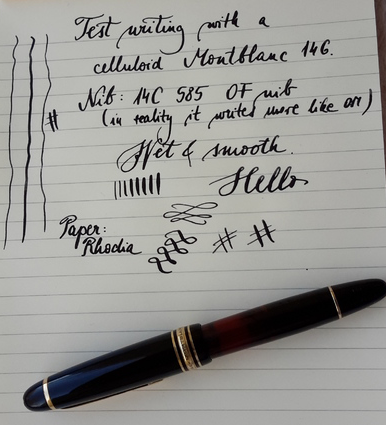 Test writing with a
celluloid Montblanc 146.
Nib: 14C 585 OF nib
(in reality it writes more like OM)
Wet & smooth.
Hello
Paper:
Rhodia